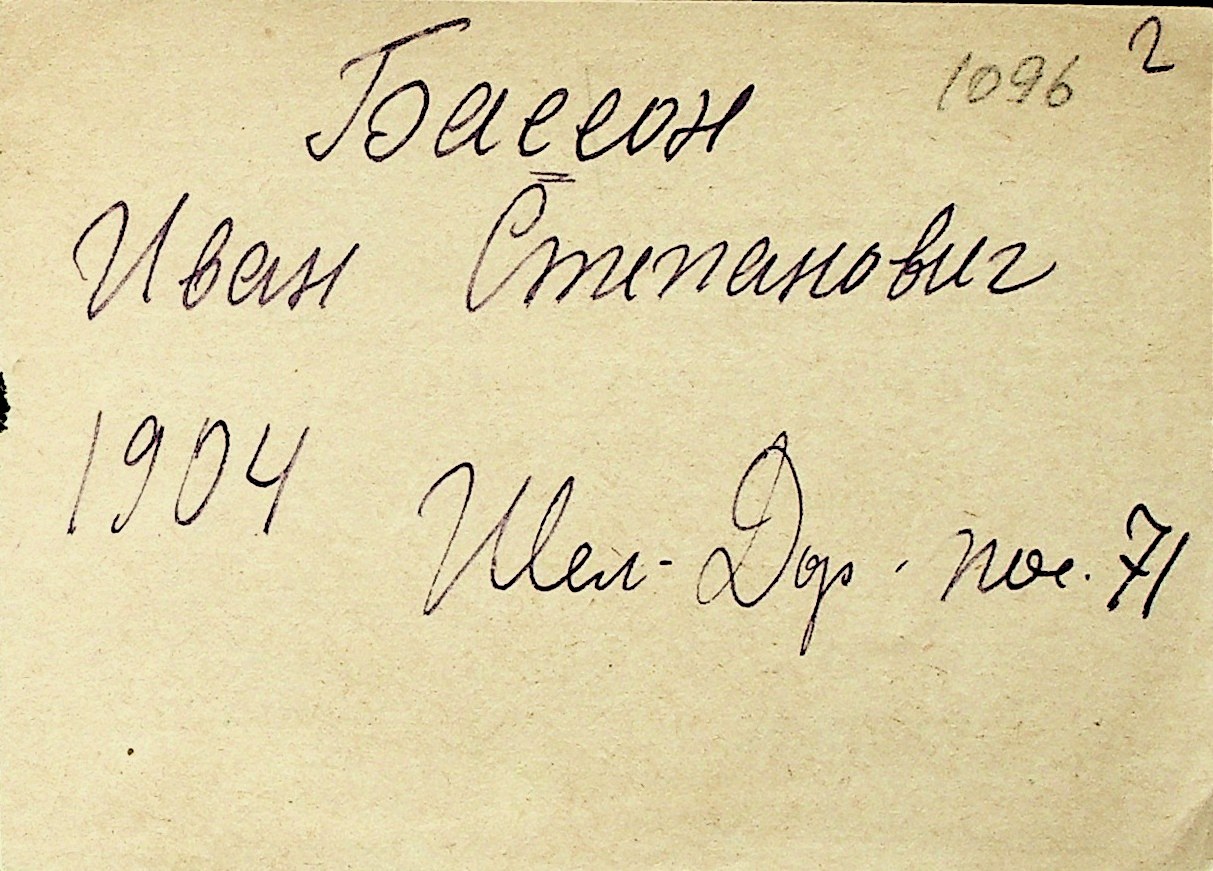 Бассон 1096 2
Иван Степанович
1904 Шел-Дор. пос. 71